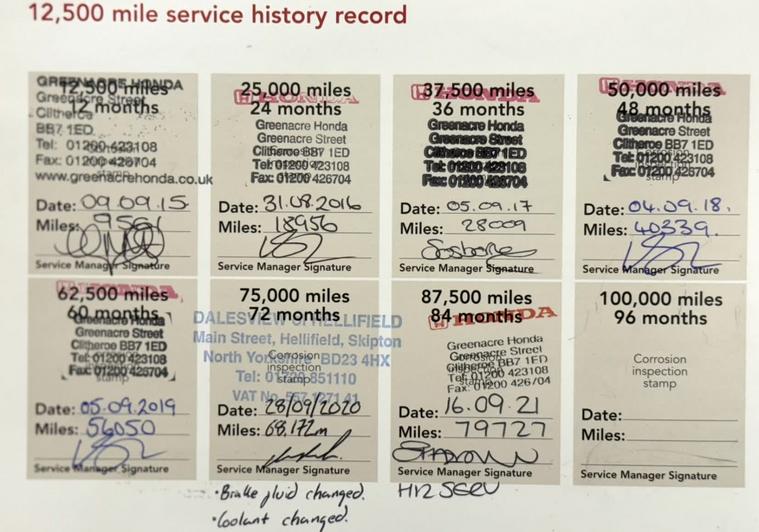 12,500 mile service history record
12,500 miles
12 months
GREENACRE HONDA
Greenacre Street
Clitheroe
BB7 1ED
Tel: 01200 423108
Fax: 01200 426704
www.greenacrehonda.co.uk
Date: 09.09.15
Miles: 9561
Service Manager Signature
25,000 miles
24 months
HONDA
Greenacre Honda
Greenacre Street
Clitheroe BB7 1ED
Tel: 01200 423108
Fax: 01200 426704
Date: 31.08.2016
Miles: 18956
Service Manager Signature
37,500 miles
36 months
HONDA
Greenacre Honda
Greenacre Street
Clitheroe BB7 1ED
Tel: 01200 423108
Fax: 01200 426704
Date: 05.09.17
Miles: 28009
Service Manager Signature
50,000 miles
48 months
HONDA
Greenacre Honda
Greenacre Street
Clitheroe BB7 1ED
Tel: 01200 423108
Fax: 01200 426704
stamp
Date: 04.09.18.
Miles: 40339.
Service Manager Signature
62,500 miles
60 months
HONDA
Greenacre Honda
Greenacre Street
Clitheroe BB7 1ED
Tel: 01200 423108
Fax: 01200 426704
Date: 05.09.2019
Miles: 56050
Service Manager Signature
75,000 miles
72 months
DALESVIEW OF HELLIFIELD
Main Street, Hellifield, Skipton
North Yorkshire BD23 4HX
Corrosion
inspection
stamp
Tel: 01729 851110
VAT No.
Date: 28/09/2020
Miles: 68,172m
Service Manager Signature
•Brake fluid changed.
•Coolant changed.
87,500 miles
84 months
HONDA
Greenacre Honda
Greenacre Street
Clitheroe BB7 1ED
Tel: 01200 423108
Fax: 01200 426704
Date: 16.09.21
Miles: 79727
Service Manager Signature
100,000 miles
96 months
Corrosion
inspection
stamp
Date:
Miles:
Service Manager Signature